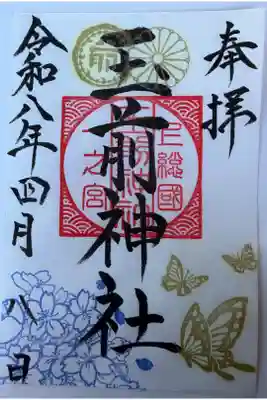 奉拝
上総國
玉前神社
之宮
令和八年四月八日